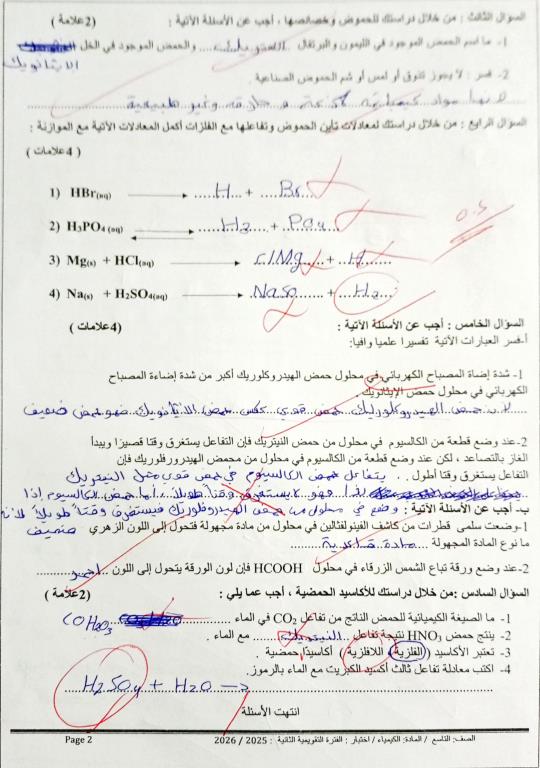 السؤال الثالث : من خلال دراستك للحموض وخصائصها ، أجب عن الأسئلة الآتية : (2علامة )
1- ما اسم الحمض الموجود في الليمون والبرتقال الستريك والحمض الموجود في الخل
الايثانويك
2- فسر : لا يجوز تذوق أو لمس أو شم الحموض الصناعية .
لانها مواد كيميائية حارقة وغير طبيعية
السؤال الرابع : من خلال دراستك لمعادلات تأين الحموض وتفاعلها مع الفلزات أكمل المعادلات الآتية مع الموازنة :
( 4علامات )
1) HBr(aq) → H + Br
2) H3PO4 (aq) ⇄ H3 + PO4
0.5
3) Mg(s) + HCl(aq) → clMg + H
4) Na(s) + H2SO4(aq) → NaSo + H2
السؤال الخامس : أجب عن الأسئلة الآتية : (4علامات )
أ-فسر العبارات الآتية تفسيرا علميا وافيا:
1- شدة إضاءة المصباح الكهربائي في محلول حمض الهيدروكلوريك أكبر من شدة إضاءة المصباح
الكهربائي في محلول حمض الإيثانويك .
لان حمض الهيدروكلوريك حمض قوي عكس حمض الايثانويك فهو حمض ضعيف
2-عند وضع قطعة من الكالسيوم في محلول من حمض النيتريك فإن التفاعل يستغرق وقتا قصيرا ويبدأ
الغاز بالتصاعد ، لكن عند وضع قطعة من الكالسيوم في محلول من محمض الهيدروفلوريك فإن
التفاعل يستغرق وقتا أطول . يتفاعل حمض الكالسيوم في حمض قوي مثل النيتريك
اذا فهو لا يستغرق وقتاً طويلا أما حمض الكالسيوم إذا
ب- أجب عن الأسئلة الآتية : وضع في محلول من حمض الهيدروفلوريك فيستغرق وقتاً طويلا لأنه
ضعيف
1-وضعت سلمى قطرات من كاشف الفينولفثالين في محلول من مادة مجهولة فتحول إلى اللون الزهري
ما نوع المادة المجهولة مادة قاعدية
2-عند وضع ورقة تباع الشمس الزرقاء في محلول HCOOH فإن لون الورقة يتحول إلى اللون احمر
السؤال السادس :من خلال دراستك للأكاسيد الحمضية ، أجب عما يلي : (2علامة )
1- ما الصيغة الكيميائية للحمض الناتج من تفاعل CO2 في الماء
2- ينتج حمض HNO3 نتيجة تفاعل النيتريك مع الماء .
3- تعتبر الأكاسيد ( الفلزية / اللافلزية ) أكاسيدًا حمضية .
4- اكتب معادلة تفاعل ثالث أكسيد الكبريت مع الماء بالرموز.
H2SO4 + H2O →
انتهت الأسئلة
الصف: التاسع / المادة: الكيمياء / اختبار : الفترة التقويمية الثانية : 2025 / 2026 Page 2